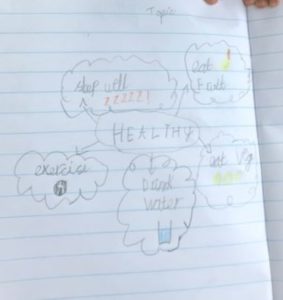 Topic
slep well
zzzzzz
eat
fruit
HEALTHY
exercise
drink
water
eat veg